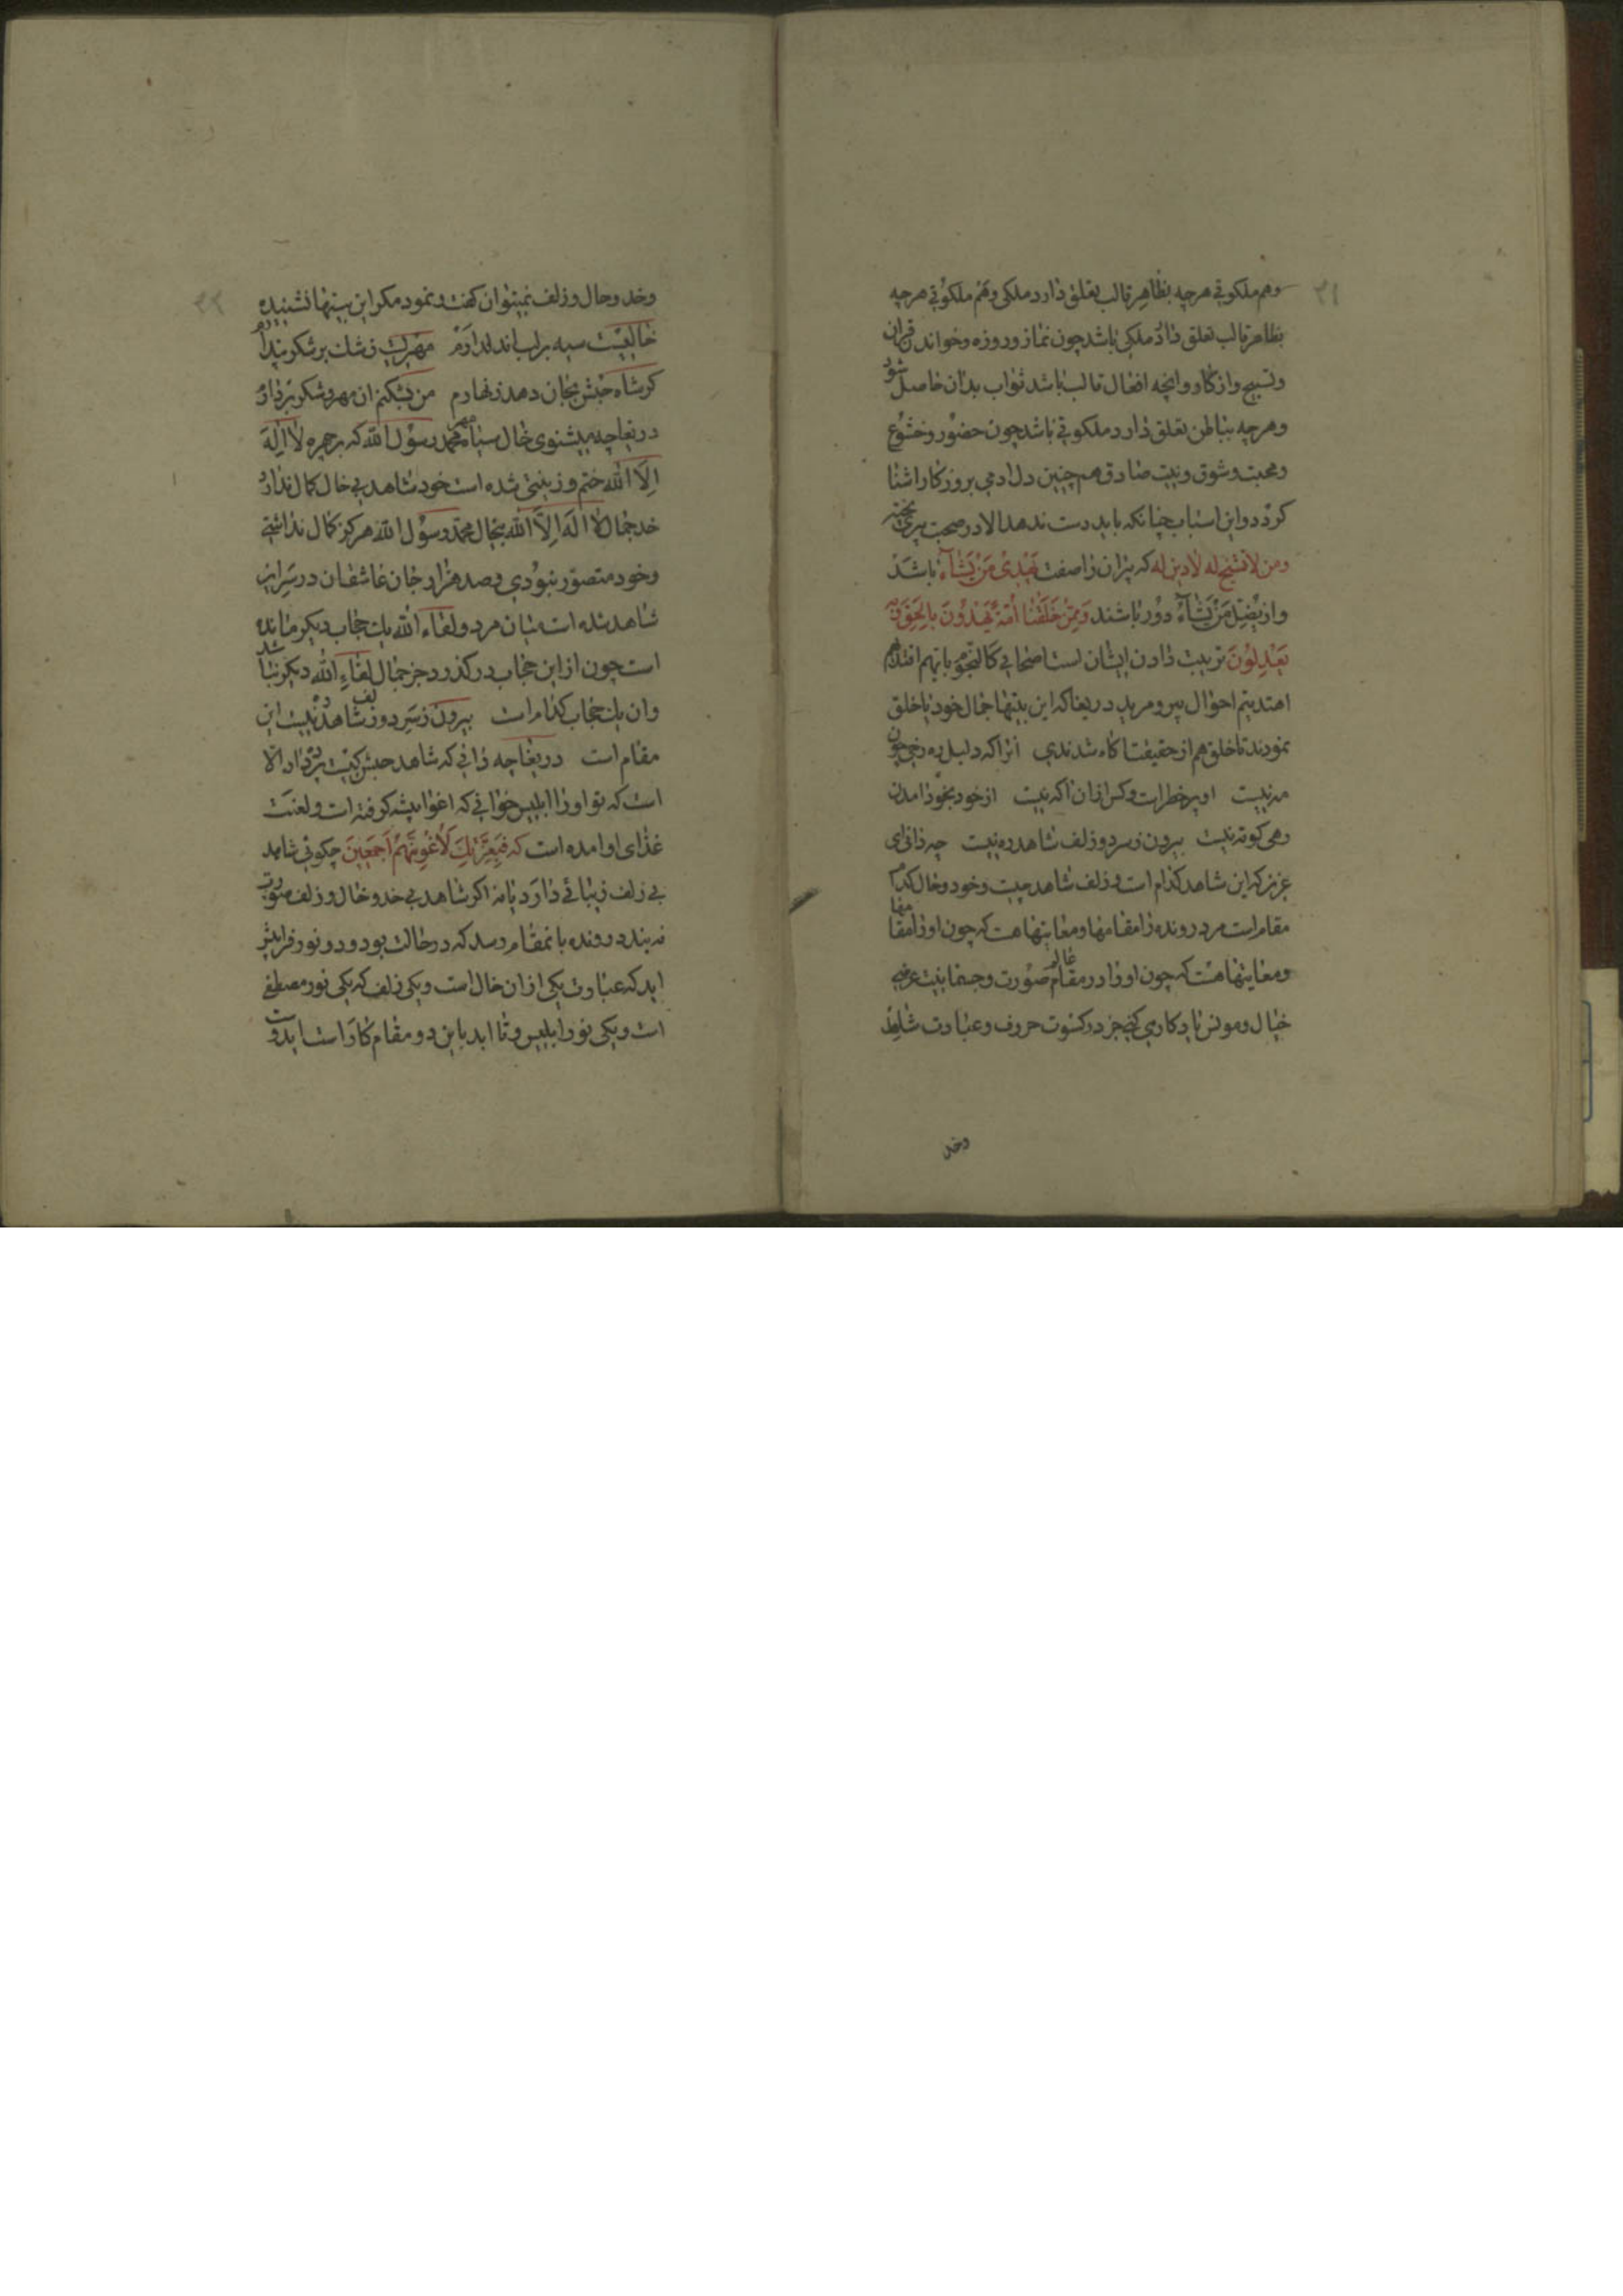 ۳۱
وهم ملکوتی هرچه بظاهر قالب تعلق دارد ملکی وهم ملکوتی هرچه
بظاهر قالب تعلق دارد ملکی باشد چون نماز و روزه و خواندن قرآن
و تسبیح و اذکار و آنچه افعال قالب باشد ثواب بدان حاصل شود
و هرچه بباطن تعلق دارد ملکوتی باشد چون حضور و خشوع
و محبت و شوق و نیت صادق هم چنین دل ادمی بروزکار اشنا
کردد و این اسباب چنانکه باید دست ندهد الا در صحبت پیری پخته
ومن لا شیخ له لا دین له که پیران را صفت یَهْدِی مَنْ یَشَآءُ باشد
و از یُضِلُّ مَنْ یَشَآءُ دور باشند وَمِمَّنْ خَلَقْنَا أُمَّةٌ یَهْدُونَ بِالْحَقِّ وَبِهِ
یَعْدِلُونَ تربیت دادن ایشان است اصحابی کالنجوم بایهم اقتدیتم
اهتدیتم احوال پیر و مرید دریغا که این بیتها جمال خود با خلق
نمودند تا خلق هم از حقیقت اکاه شدندی انرا که دلیل ره رخی چون
مه نیست او بر خطرات و کس ازان اکه نیست از خود بخود امدن
رهی کوته نیست بیرون ز سر دو زلف شاهد ره نیست چه دانی ای
عزیز که این شاهد کدام است و زلف شاهد چیست و خد و خال کدام
مقام است مرد رونده را مقامها و معانیها هست که چون او را مقا مقا
و معانیها هست که چون او را در مقام عالم صورت و جسمانیت عرضه
خیال و مونس یادکاری کنی جز در کسوت حروف و عبارت شاهد
وخد
۳۲
وخد و خال و زلف نمیتوان کفت و نمود مکر این بیتها نشنیده
خالیست سیه بر لب اندلدارم مهریست ز مشک بر شکر پندارم
کر شاه حبش بجان دهد زنهارم من بشکنم ان مهر و شکر بردارم
دریغا چه میشنوی خال سیاه مهر محمد رسول الله که بر چهره لَا إِلَهَ
إِلَّا الله ختم و زینتی شده است خود شاهد بی خال کمال ندارد
خد جمال لا اله إِلَّا الله بیخال محمد رسول الله هرکز کمال نداشتی
و خود متصور نبودی و صد هزار جان عاشقان در سر این
شاهد شده است میان مرد و لقاء الله یک حجاب دیکر مانده
است چون از این حجاب درکذرد جز جمال لقاءِ الله دیکر نباشد
و ان یک حجاب کدام است بیرون ز سر دو زلف شاهد ره نیست این
مقام است دریغا چه دانی که شاهد حبش کیست پرده دار الا
است که تو او را ابلیس خوانی که اغوا پیشه کرفته است و لعنت
غذای او امده است که فَبِعِزَّتِكَ لَأُغْوِیَنَّهُمْ أَجْمَعِینَ چکوئی شاهد
بی زلف زیبائی دارد یا نه اکر شاهد بی خد و خال و زلف صورت
نه بندد رونده بانمقام رسد که در حالت بود و دو نور فرا پیش
اید که عبارت یکی ازان خال است و یکی زلف که یکی نور مصطفی
است و یکی نور ابلیس و تا ابد با این دو مقام کار است ای دوست